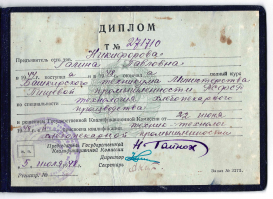 ДИПЛОМ
Т № 271710
Предъявитель сего тов. Никифорова
Галина Павловна
в 19 поступил а в 19 окончил а полный курс
Башкирского техникума Министерства
Пищевой промышленности РСФСР
по специальности технология хлебопекарного
производства
и решением Государственной Квалификационной Комиссии от 22 июня
присвоена квалификация техник-технолог
хлебопекарной промышленности
Председатель Государственной
Квалификационной Комиссии
Директор
Секретарь
5 июля
Город Уфа